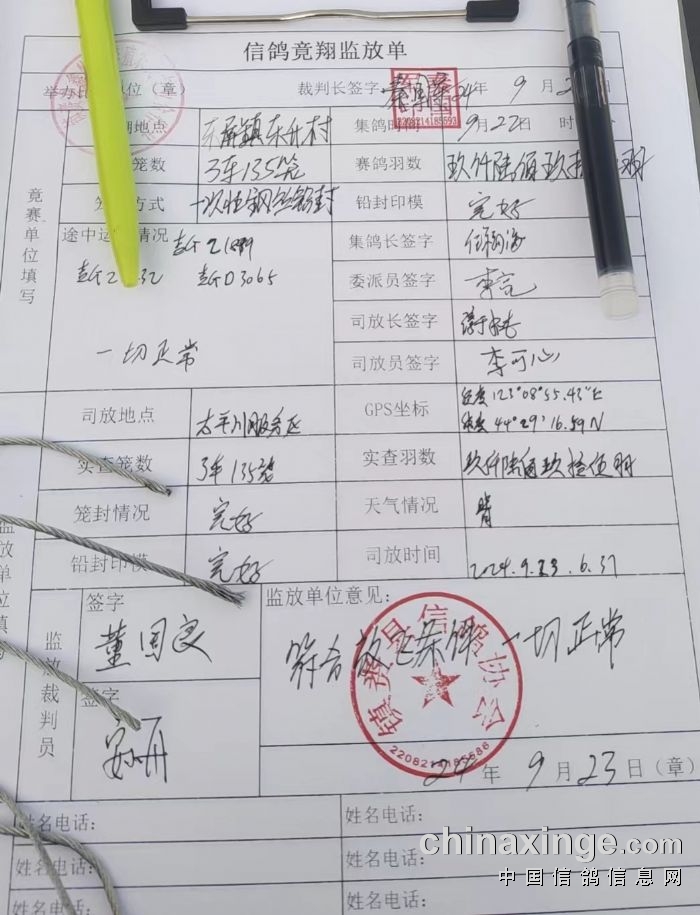 信鸽竞翔监放单
举办 单位（章） 裁判长签字 24年 9月2
地点 东屏镇东升村 集鸽时间 9月22日 时
笼数 3车135笼 赛鸽羽数 玖仟陆佰玖拾
方式 一次性钢丝铅封 铅封印模 完好
竞赛单位填写
途中运 情况 吉G2 集鸽长签字
吉G2 32 吉GD3065 委派员签字 李亮
司放长签字
一切正常 司放员签字 李可心
司放地点 太平川服务区 GPS坐标 经度123°08'55.43"E
纬度44°29'16.59N
实查笼数 3车135笼 实查羽数 玖仟陆佰玖拾伍羽
笼封情况 完好 天气情况 晴
铅封印模 完好 司放时间 2024.9.23.6.37
监放单位填
监放裁判员
签字 董国良 监放单位意见：
符合放飞条件 一切正常
签字
镇赉县信鸽协会
2208214185686
24年9月23日（章）
姓名电话： 姓名电话：
姓名电话： 姓名电话：
姓名电话： 姓名电话：
chinaxinge.com
中国信鸽信息网